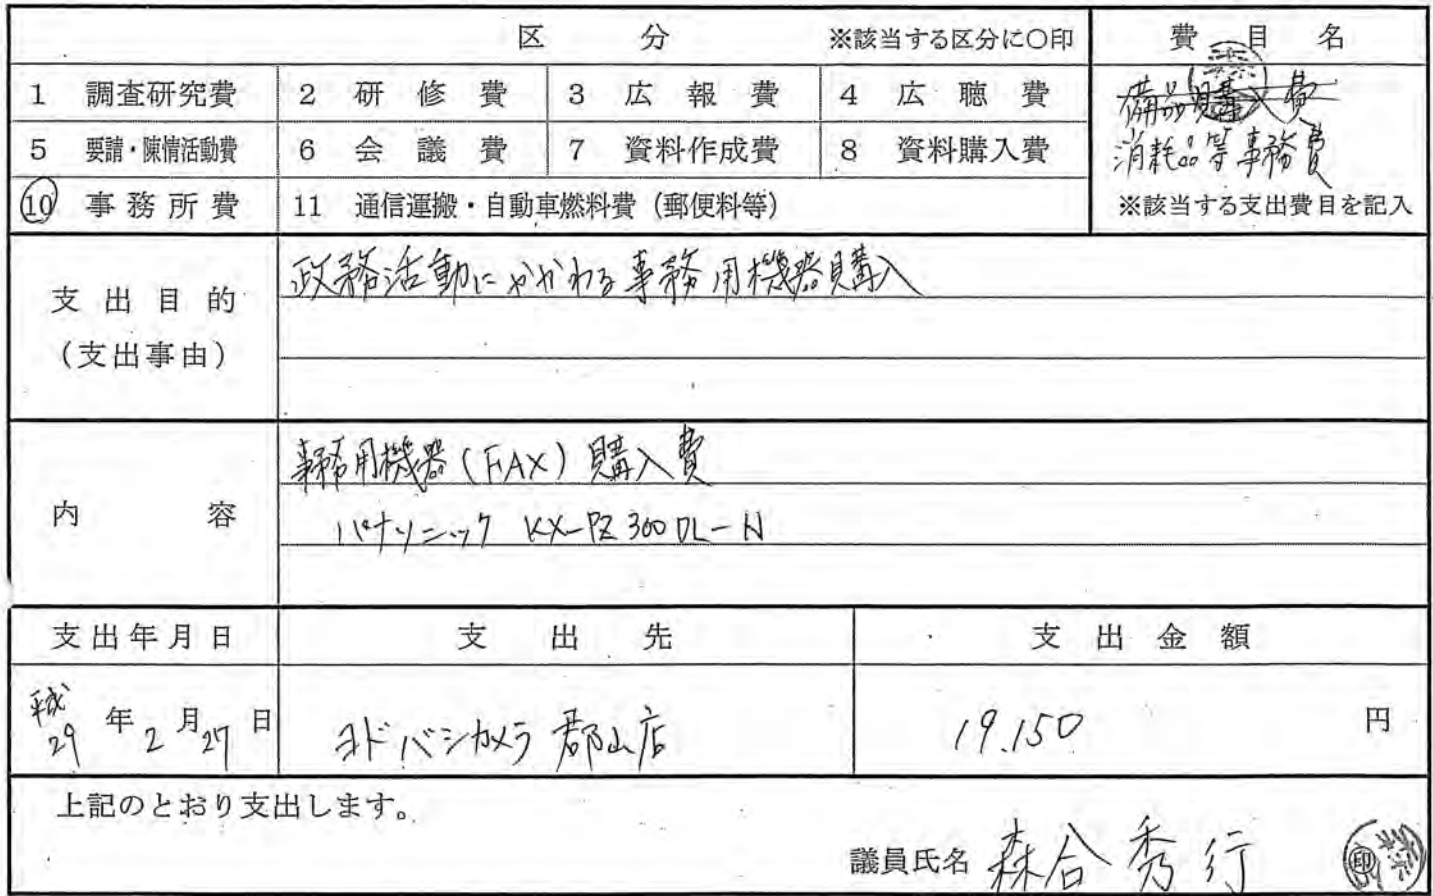 区 分 ※該当する区分に○印 費 目 名
1 調査研究費 2 研修費 3 広報費 4 広聴費 備品購入費
5 要請・陳情活動費 6 会議費 7 資料作成費 8 資料購入費 消耗品等事務費
10 事務所費 11 通信運搬・自動車燃料費(郵便料等) ※該当する支出費目を記入
支出目的 政務活動にかかわる事務用機器購入
(支出事由)
事務用機器(FAX)購入費
内 容 パナソニック KX-PZ300DL-N
支出年月日 支 出 先 支 出 金 額
平成29年2月27日 ヨドバシカメラ郡山店 19.150 円
上記のとおり支出します。
議員氏名 森合秀行 印